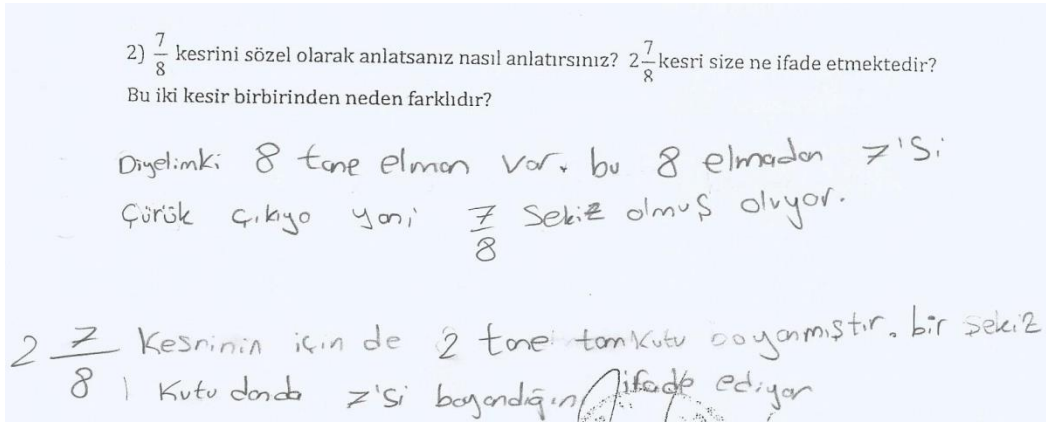 2) 7/8 kesrini sözel olarak anlatsanız nasıl anlatırsınız? 2 7/8 kesri size ne ifade etmektedir?
Bu iki kesir birbirinden neden farklıdır?
Diyelimki 8 tane elman var. bu 8 elmadan 7'si
Çürük çıkıyo yani 7/8 sekiz olmuş oluyor.
2 7/8 kesrinin için de 2 tane tam kutu boyanmıştır. bir sekiz
1 kutu danda 7'si boyandığını ifade ediyor